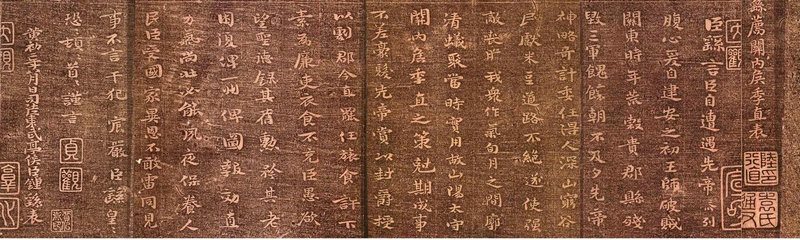 繇薦關內侯季直表
臣繇言臣自遭遇先帝忝列
腹心爰自建安之初王師破賊
關東時年荒穀貴郡縣殘
毀三軍餽饟朝不及夕先帝
神略奇計委任得人深山窮谷
民獻米豆道路不絕遂使強
敵喪膽我衆作氣旬月之間廓
清蟻聚當時實用故山陽太守
關內侯季直之策剋期成事
不差豪髮先帝賞以封爵授
以劇郡今直罷任旅食許下
素為廉吏衣食不充臣愚欲
望聖德錄其舊勳矜其老
困復俾一州俾圖報效直
力氣尚壯必能夙夜保養人
民臣受國家異恩不敢雷同見
事不言干犯宸嚴臣繇皇
恐頓首謹言
黃初二年八月日司徒東武亭侯臣鍾繇表
大觀
貞觀